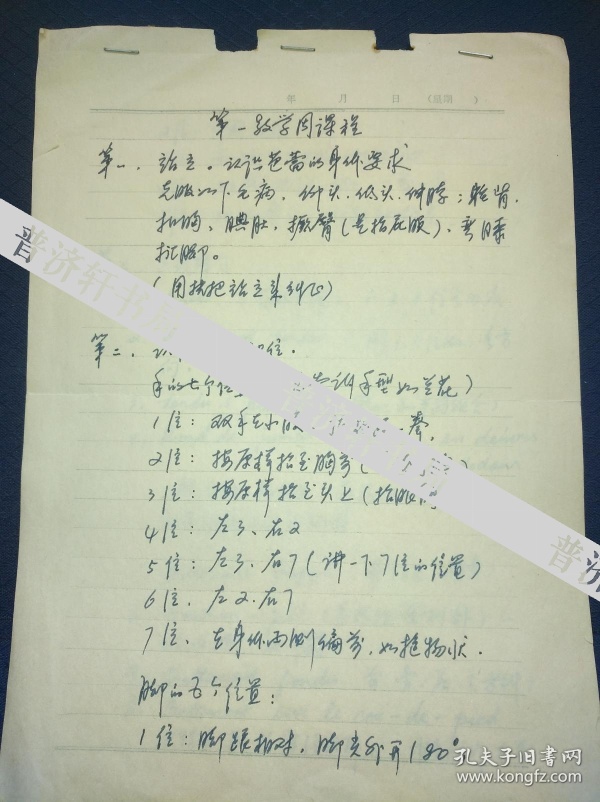 年 月 日 (星期 )
第一教学周课程
第一、站立。认识芭蕾的身体要求
克服以下毛病,仰头、低头、伸脖;耸肩、
扣胸、腆肚、撅臀(是指屁股)、弯膝
(用扶把站立来纠正)
第二、位.
手的七个位(手型如兰花)
1位:双手在小腹
2位:按原样抬至胸前(
3位:按原样抬至头上(抬眼
4位:左3、右2
5位:左3、右7(讲一下7位的位置)
6位、左2.右7
7位、在身体两侧偏前,如抱物状.
脚的五个位置:
1位:脚跟相对,脚尖外开180°
普济轩书店
普济轩书店
普济
孔夫子旧书网
www.kongfz.com